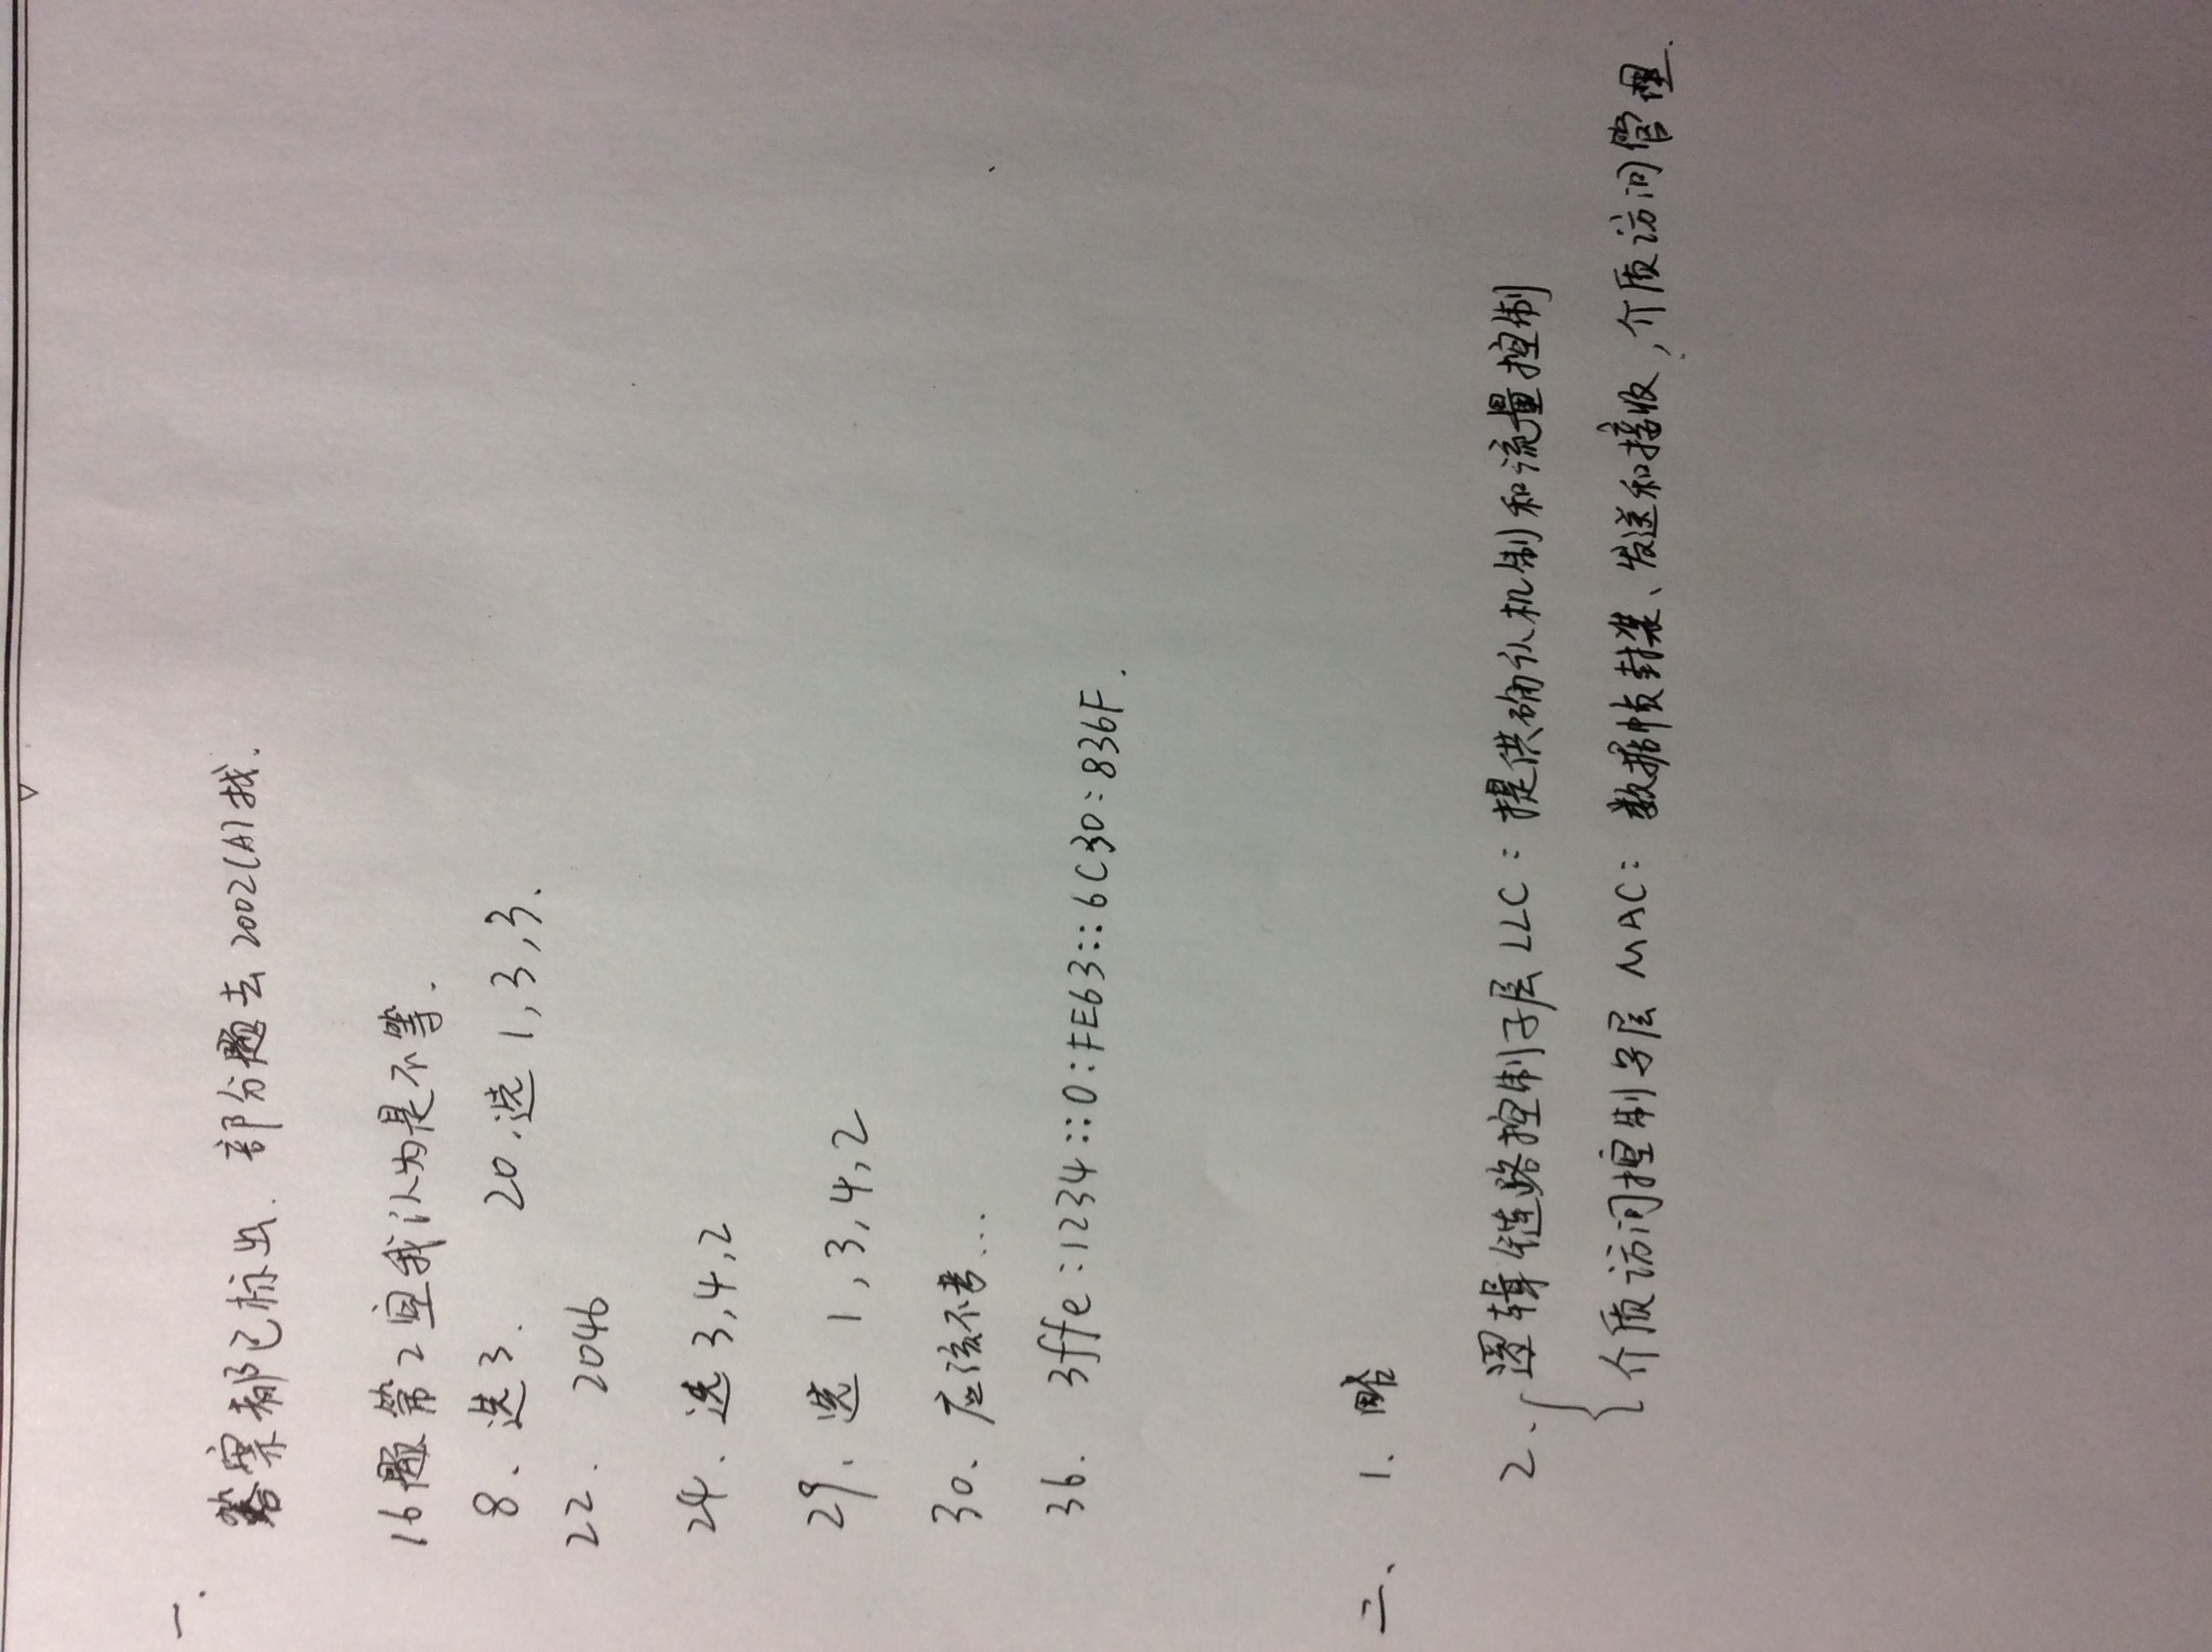 一.
答案都已标出. 部分题去2002(A)找.
16题第2空我认为是不等.
8、选3. 20.选1,3,3.
22. 2046
24. 选3,4,2
29、选 1,3,4,2
30、应该不考...
36. 3ffe:1234::0:FE63::6C30:836F.
二、 1、略
2、逻辑链路控制子层LLC:提供确认机制和流量控制
介质访问控制子层MAC:数据帧封装、发送和接收,介质访问管理.